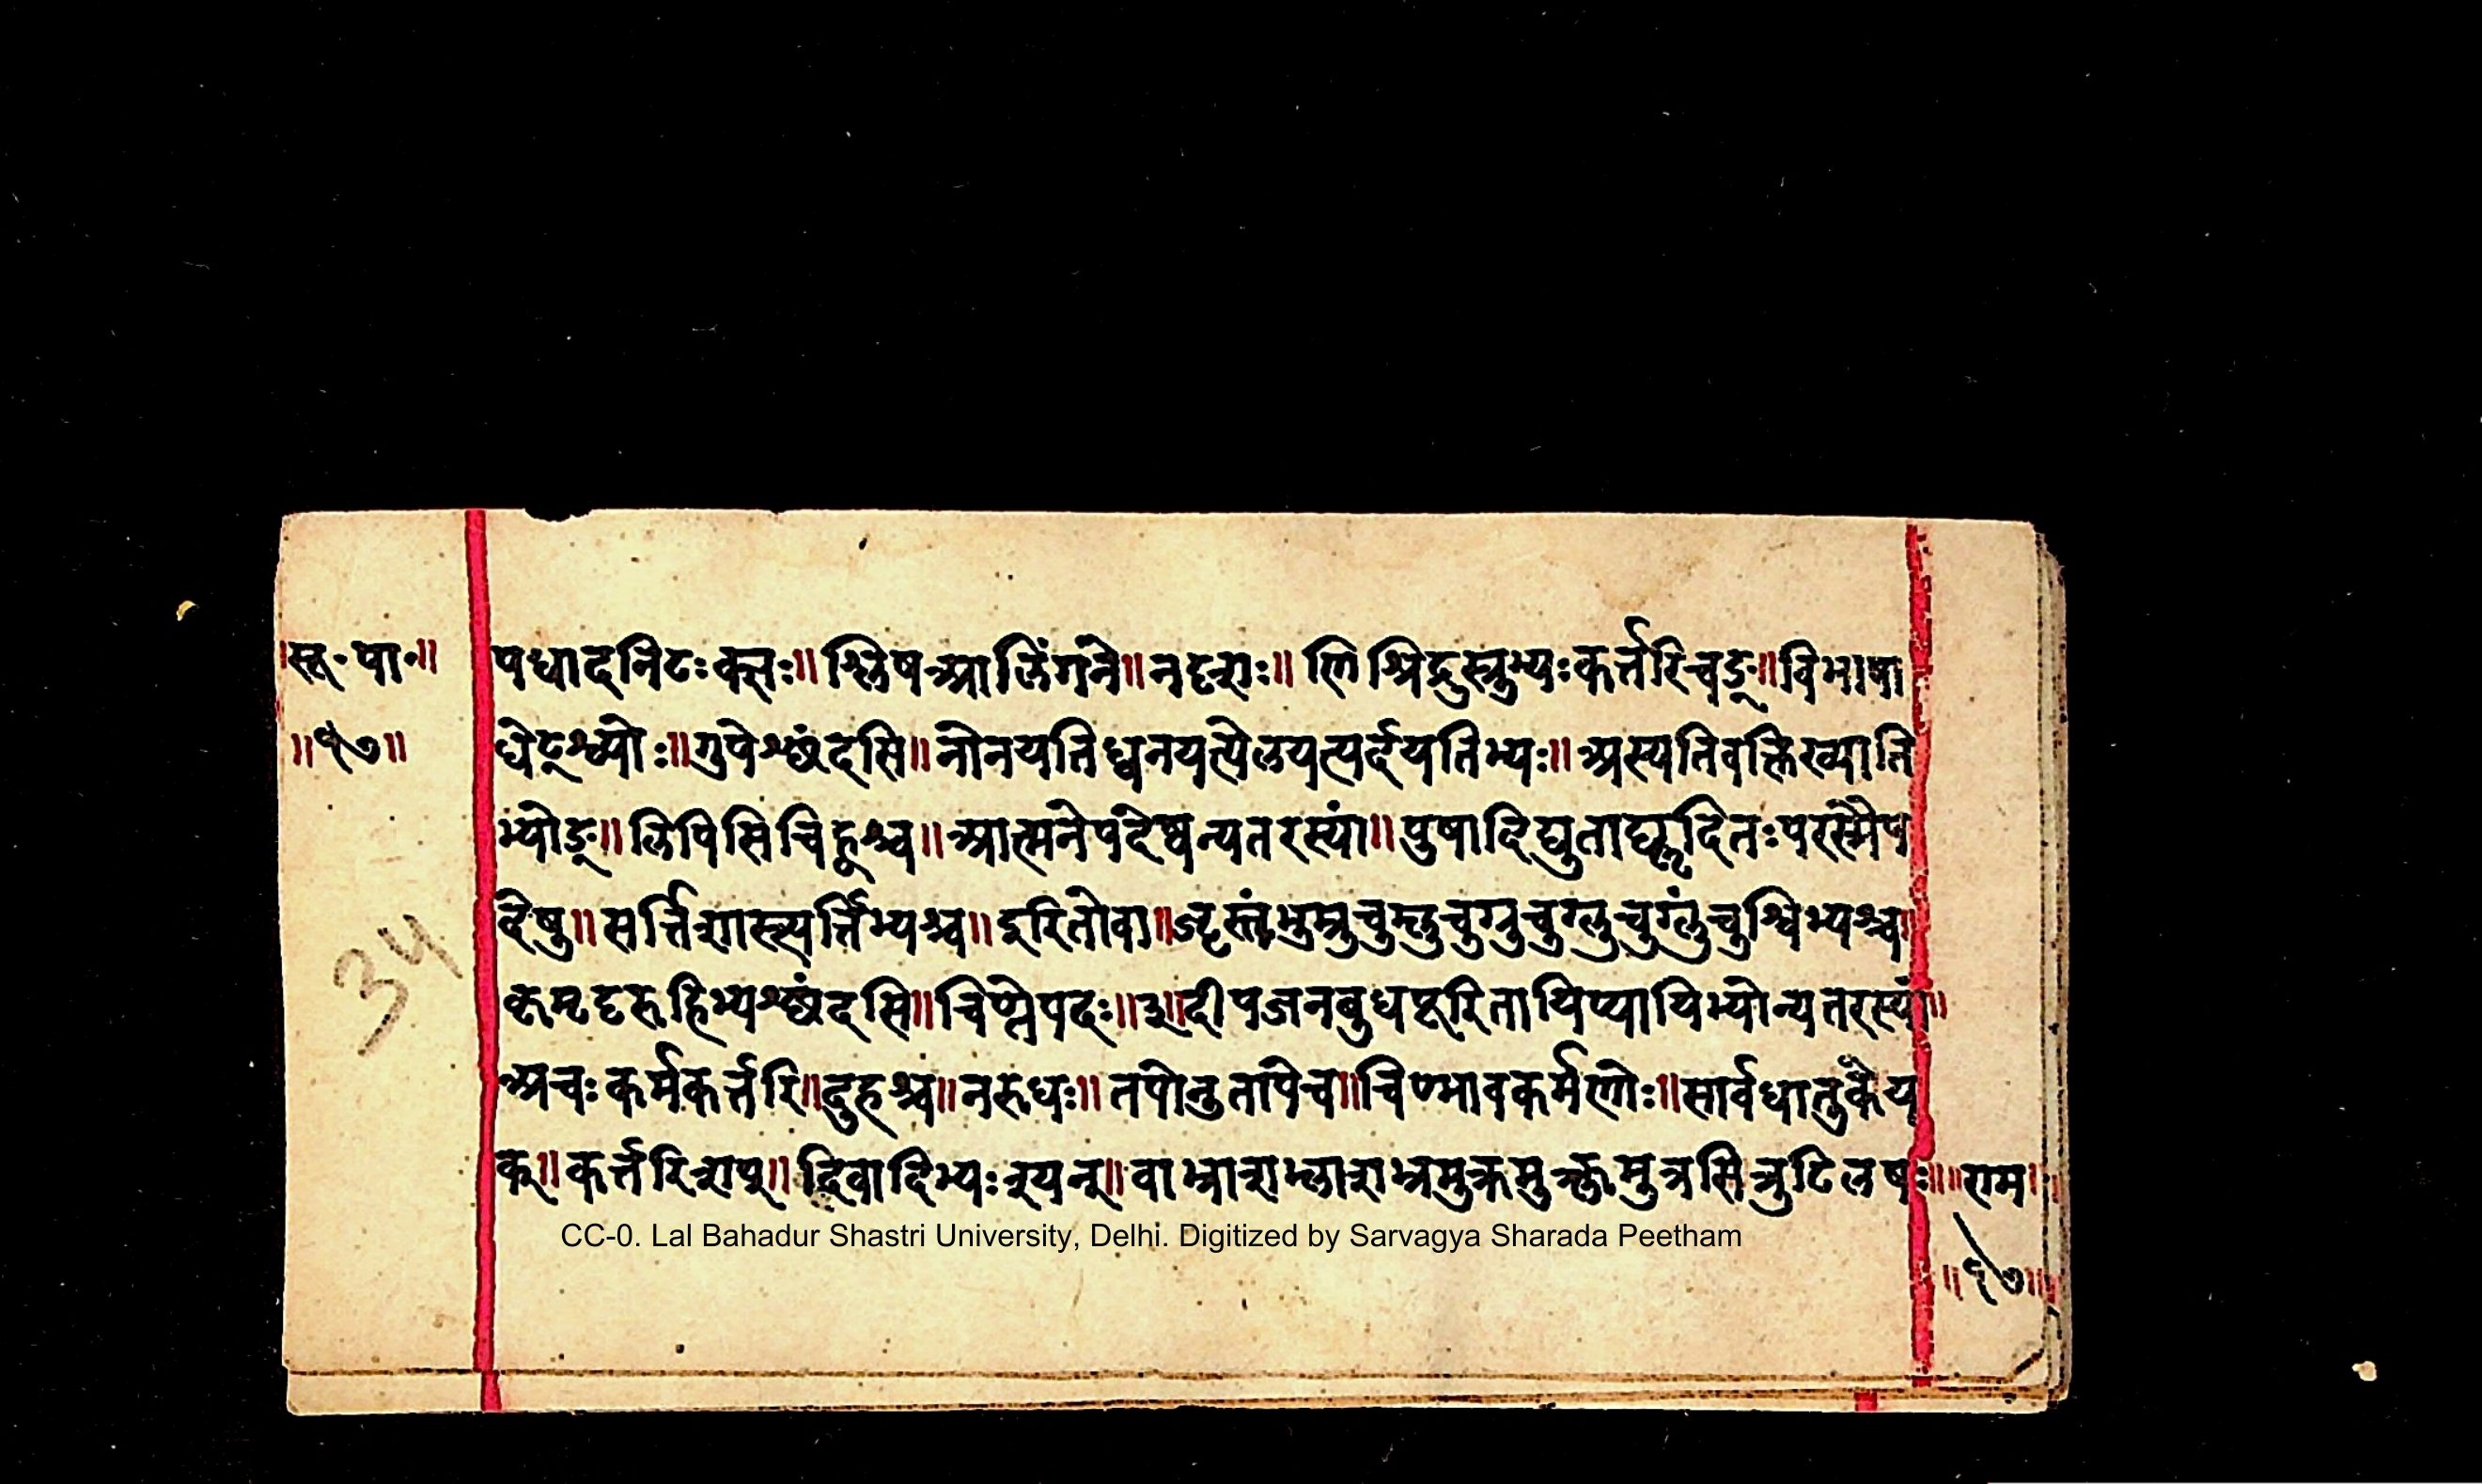 ॥सू॰पा॰॥
॥१७॥
३५
पधादनिटःक्सः॥श्लिषआलिंगने॥नदृशः॥णिश्रिद्रुस्रुभ्यःकर्त्तरिचङ्॥विभाषा
धेट्श्व्योः॥गुपेश्छंदसि॥नोनयतिध्वनयत्येलयत्यर्दयतिभ्यः॥अस्यतिवक्तिख्याति
भ्योङ्॥लिपिसिचिह्वश्च॥आत्मनेपदेष्वन्यतरस्यां॥पुषादिद्युताद्यॢदितःपरस्मैप
देषु॥सर्त्तिशास्त्यर्त्तिभ्यश्च॥इरितोवा॥जॄस्तंभुम्रुचुम्लुचुग्रुचुग्लुचुग्लुंचुश्विभ्यश्च॥
कृमृदृरुहिभ्यश्छंदसि॥चिण्तेपदः॥३॥दीपजनबुधपूरितायिप्यायिभ्योन्यतरस्यां॥
अचःकर्मकर्त्तरि॥दुहश्च॥नरुधः॥तपोनुतापेच॥चिण्भावकर्मणोः॥सार्वधातुकेय
क्॥कर्त्तरिशप्॥दिवादिभ्यःश्यन्॥वाभ्राशभ्लाशभ्रमुक्रमुक्लमुत्रसित्रुटिलषः॥
॥राम॥
॥१७॥
CC-0. Lal Bahadur Shastri University, Delhi. Digitized by Sarvagya Sharada Peetham